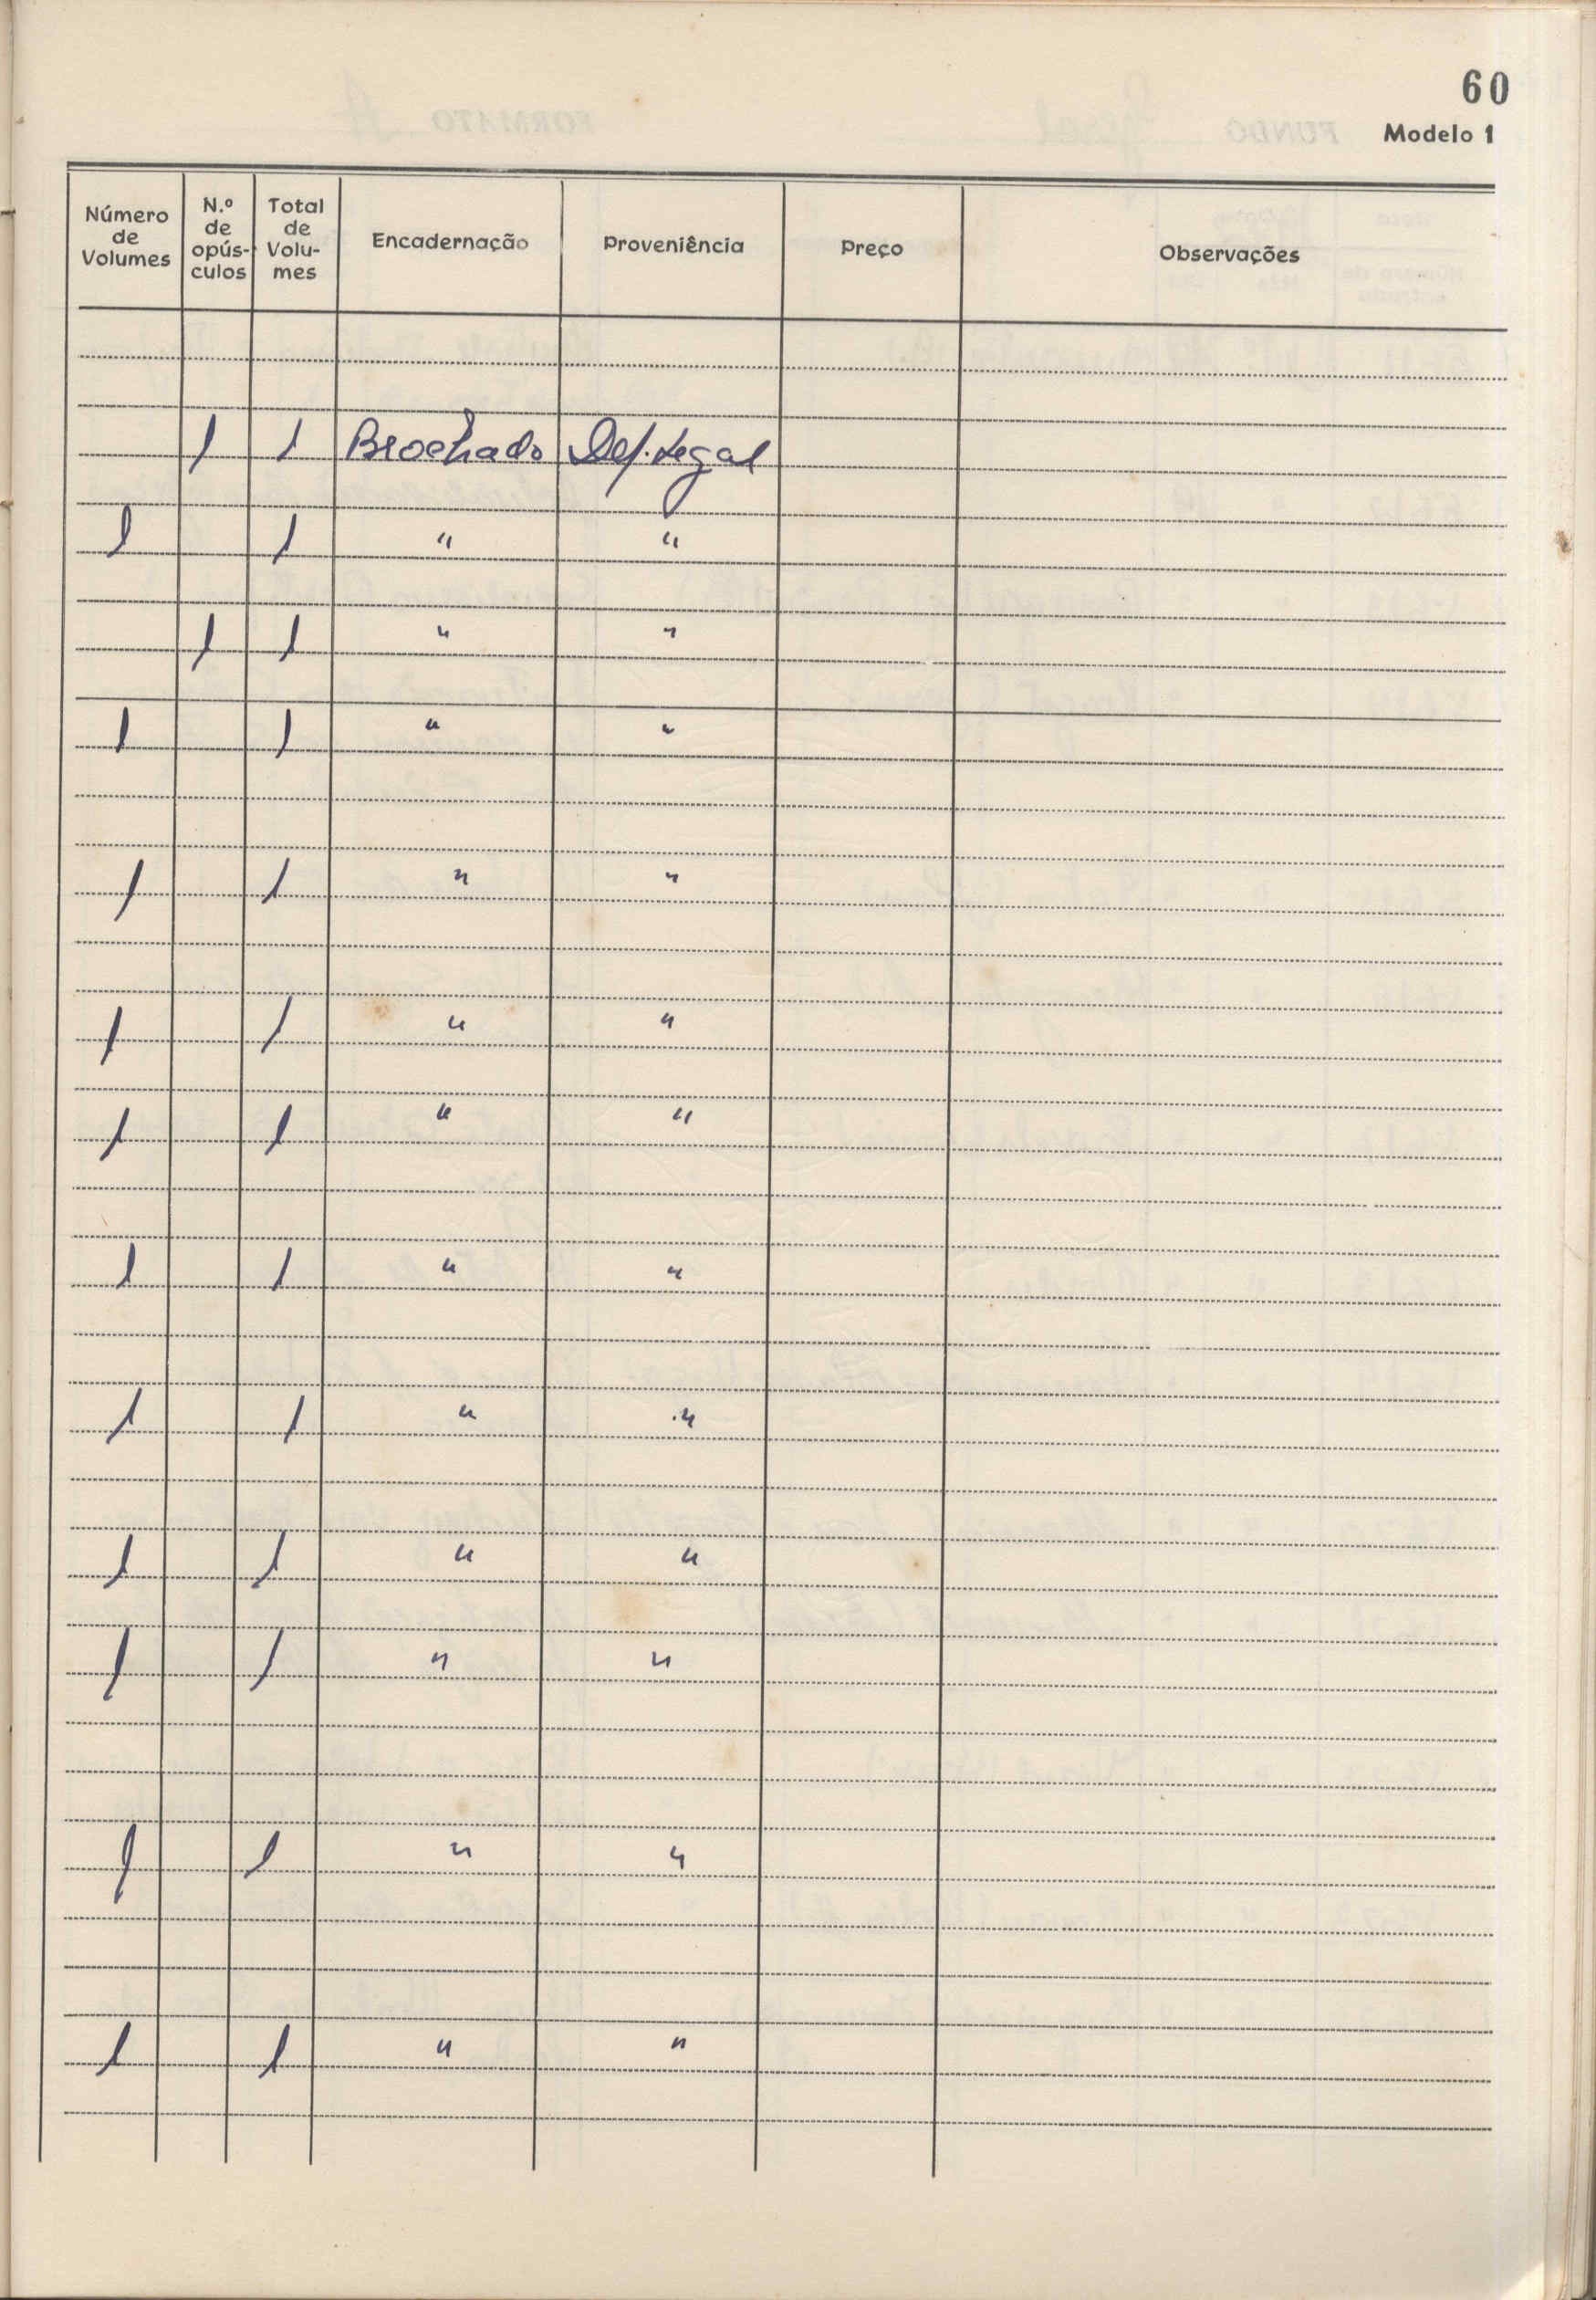 60
Modelo 1
Número de Volumes | N.º de opús-culos | Total de Volu-mes | Encadernação | Proveniência | Preço | Observações
1 1 Brochado Dep. Legal
1 1 " "
1 1 " "
1 1 " "
1 1 " "
1 1 " "
1 1 " "
1 1 " "
1 1 " "
1 1 " "
1 1 " "
1 1 " "
1 1 " "